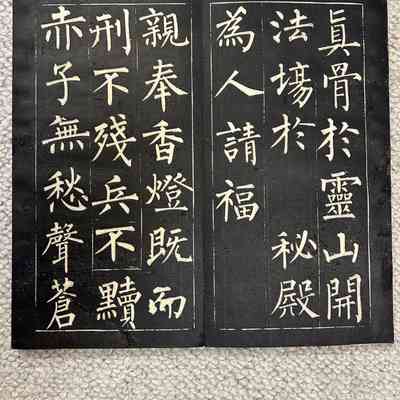 眞骨於靈山開
法場於 秘殿
為人請福
親奉香燈既而
刑不殘兵不黷
赤子無愁聲蒼